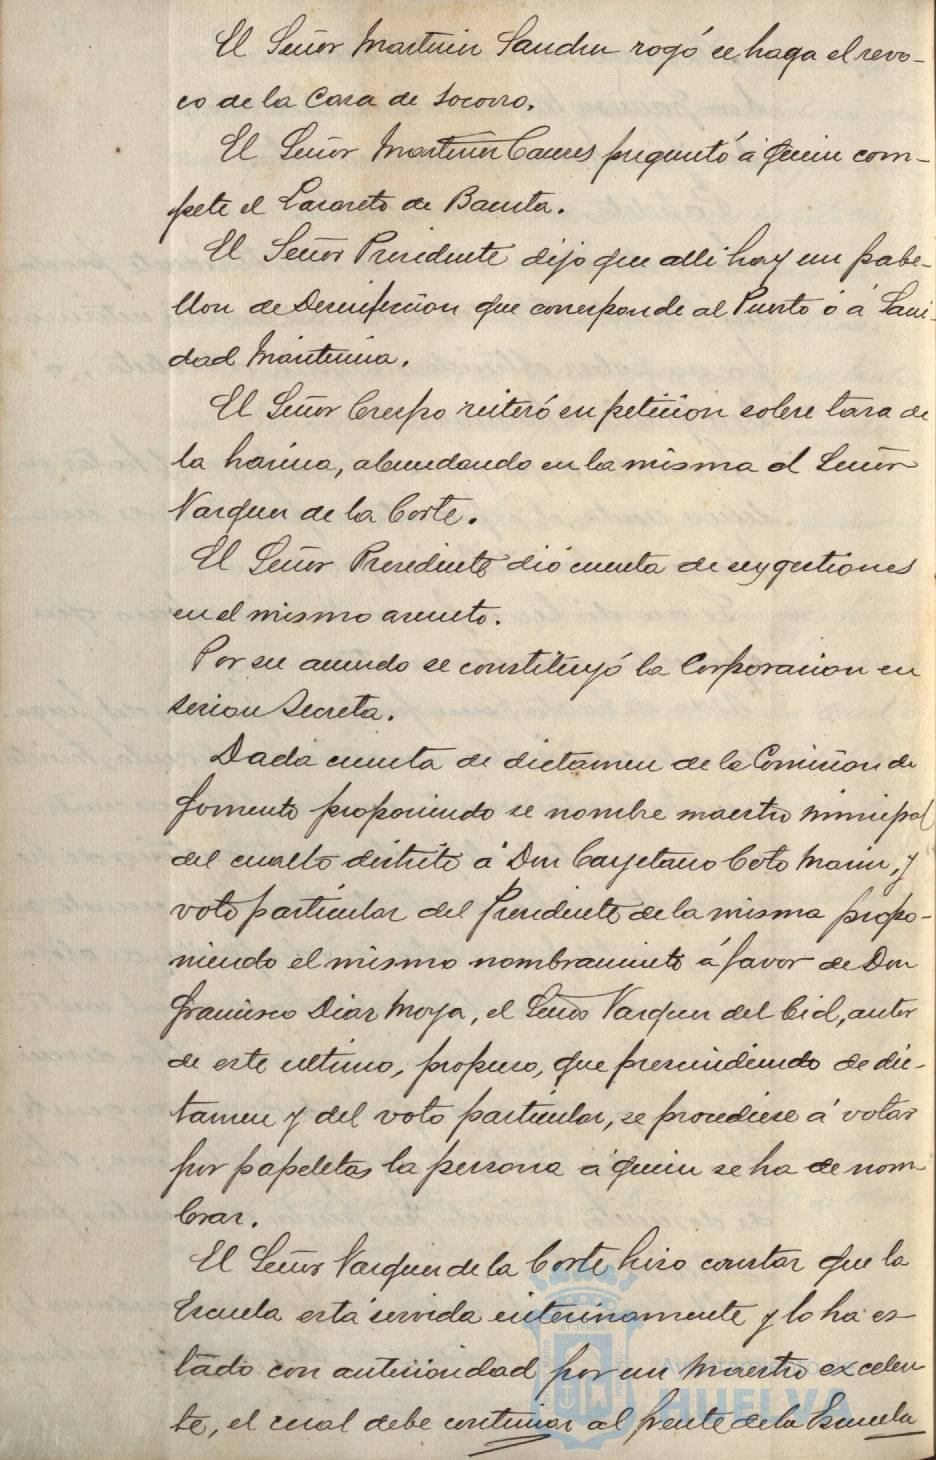 El Señor Martinez Sanchez rogó se haga el revo-
co de la Casa de Socorro.
El Señor Martinez Caceres preguntó á quien com-
pete el Lazareto de Bacuta.
El Señor Presidente dijo que alli hay un pabe-
llon de Desinfeccion que corresponde al Puerto ó á Sani-
dad Maritima.
El Señor Crespo reiteró su peticion sobre tasa de
la harina, abundando en la misma el Señor
Vazquez de la Corte.
El Señor Presidente dió cuenta de sus gestiones
en el mismo asunto.
Por su acuerdo se constituyó la Corporacion en
sesion secreta.
Dada cuenta de dictamen de la Comision de
Fomento proponiendo se nombre maestro municipal
del cuarto distrito á Don Cayetano Coto Marin, y
voto particular del Presidente de la misma propo-
niendo el mismo nombramiento á favor de Don
Francisco Diaz Moya, el Señor Vazquez del Cid, autor
de este ultimo, propuso, que prescindiendo de dic-
tamen y del voto particular, se procediese á votar
por papeletas la persona á quien se ha de nom-
brar.
El Señor Vazquez de la Corte hizo constar que la
Escuela está servida interinamente y lo ha es-
tado con anterioridad por un Maestro excelen-
te, el cual debe continuar al frente de la Escuela
AYUNTAMIENTO DE
HUELVA